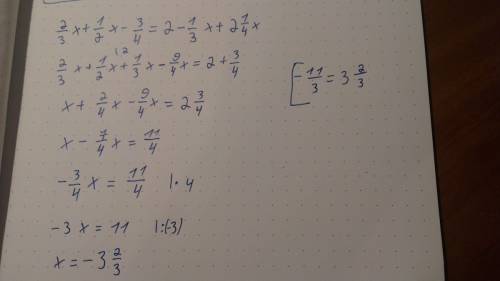 2/3 x + 1/2 x - 3/4 = 2 - 1/3 x + 2 1/4 x
2/3 x + 1/2 x + 1/3 x - 9/4 x = 2 + 3/4
x + 2/4 x - 9/4 x = 2 3/4
x - 7/4 x = 11/4
- 3/4 x = 11/4 |· 4
- 3x = 11 |:(-3)
x = - 3 2/3
[ - 11/3 = 3 2/3